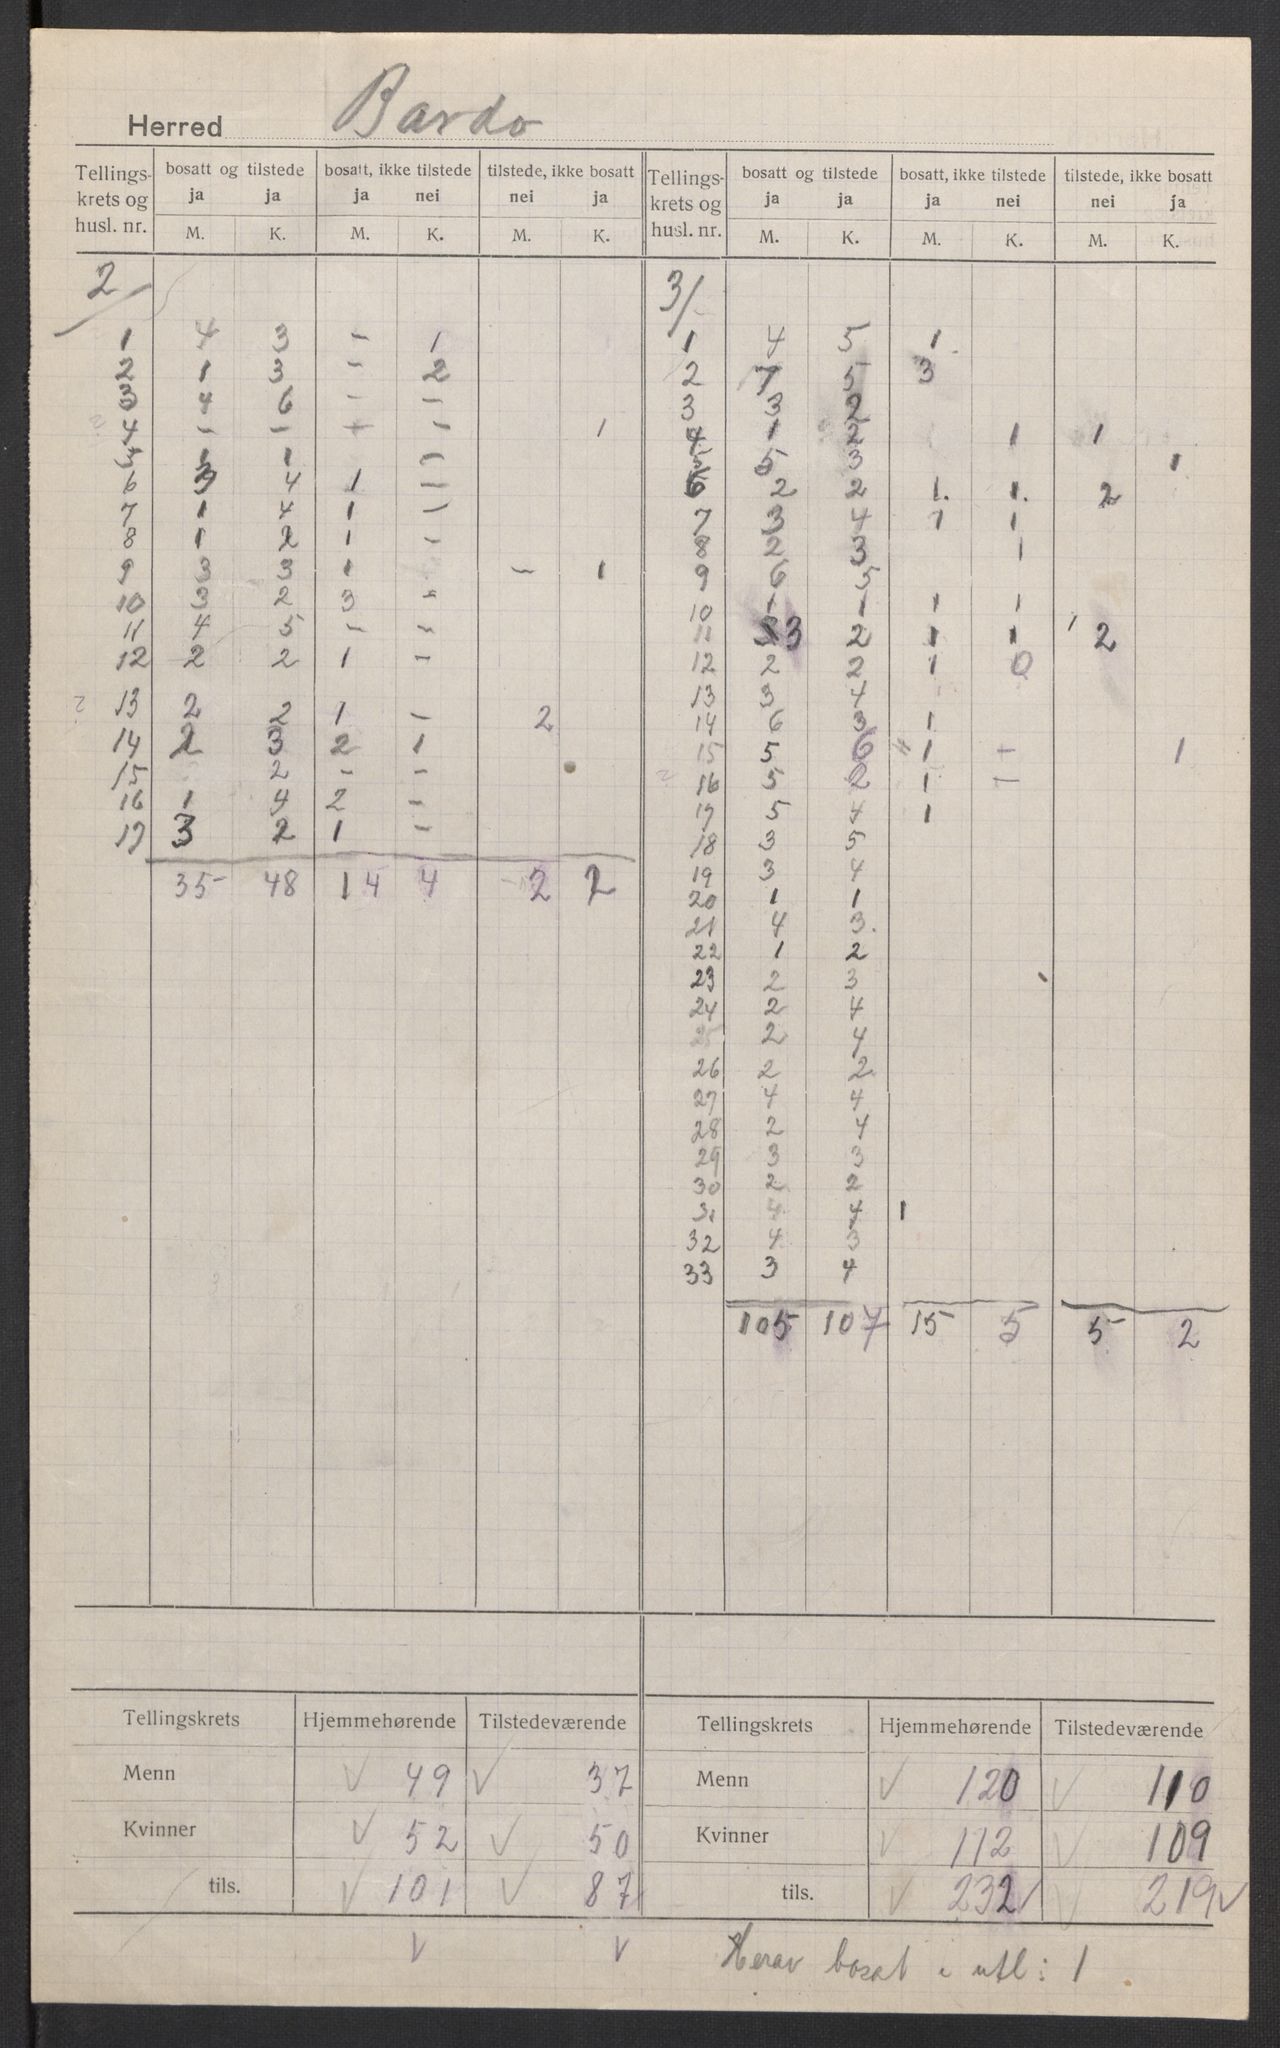 Herred Bardo
Tellings-krets og husl. nr. | bosatt og tilstede ja ja M. K. | bosatt, ikke tilstede ja nei M. K. | tilstede, ikke bosatt nei ja M. K. | Tellings-krets og husl. nr. | bosatt og tilstede ja ja M. K. | bosatt, ikke tilstede ja nei M. K. | tilstede, ikke bosatt nei ja M. K.
2/
1 4 3 - 1
2 1 3 - 2
3 4 6 - -
4 - - + - 1
5 1 1 -
6 3 4 1 -
7 1 4 1 -
8 1 2 1 -
9 3 3 1 - 1
10 3 2 3 -
11 4 5 - -
12 2 2 1 -
? 13 2 2 1 - 2
14 2 3 2 1
15 2 - -
16 1 4 2 -
17 3 2 1 -
35 48 14 4 2 2
3/
1 4 5 1
2 7 5 3
3 3 2
4 1 2 1 1
5 5 3 1
6 2 2 1. 1. 2
7 3 4 1 1
8 2 3 1
9 6 5
10 1 1 1 1
11 3 2 1 1 2
12 2 2 1 0
13 3 4
14 6 3 1
15 5 6 1 - 1
16 5 2 1 -
17 5 4 1
18 3 5
19 3 4
20 1 1
21 4 3.
22 1 2
23 2 3
24 2 4
25 2 4
26 2 2
27 4 4
28 2 4
29 3 3
30 2 2
31 4 4 1
32 4 3
33 3 4
105 107 15 5 5 2
Tellingskrets | Hjemmehørende | Tilstedeværende
Menn √ 49 √ 37
Kvinner √ 52 √ 50
tils. √ 101 √ 87
√ √
Tellingskrets | Hjemmehørende | Tilstedeværende
Menn √ 120 √ 110
Kvinner √ 112 √ 109
tils. √ 232 √ √ 219 √
Herav bosat i utl: 1